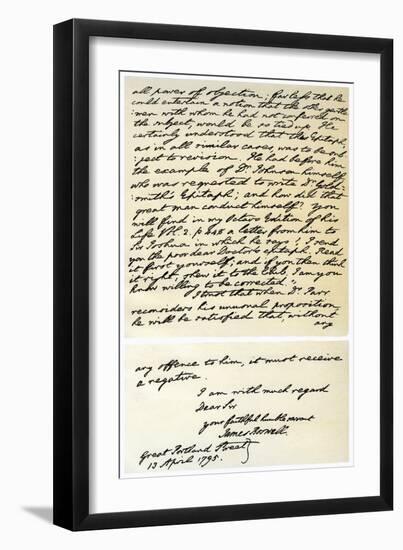 all power of objection: far less that he
could entertain a notion that the other gentle
men with whom he had not conferred on
the subject, would be so tied up. He
certainly understood that the Epitaph,
as in all similar cases, was to be sub
ject to revision. He had before him
the example of Dr. Johnson himself,
who was requested to write Dr. Gold
smith's Epitaph; and how did that
great man conduct himself? you
will find in my Octavo Edition of his
Life Vol. 2. p. 448 a letter from him to
Sir Joshua in which he says; I send
you the poor dear Doctor's epitaph. Read
it first yourself; and if you then think
it right, shew it to the Club. I am, you
know willing to be corrected."
I trust that when Dr. Parr
reconsiders his unusual proposition
he will be satisfied that, without
any
any offence to him, it must receive
a negative.
I am with much regard
Dear Sir
your faithful humble servant
James Boswell.
Great Portland Street
13 April 1795.